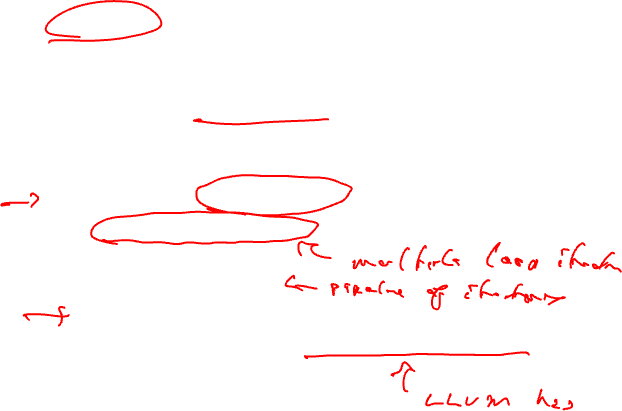 multiple loop iteration
pipeline of iterations
LLVM has